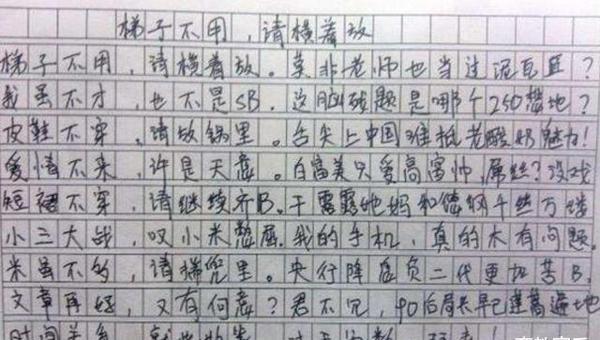 梯子不用，请横着放
梯子不用，请横着放。莫非老师也当过泥瓦匠？
我虽不才，也不是SB。这脑残题是哪个250想地？
皮鞋不穿，请放锅里。舌尖上中国难抵老酸奶魅力！
爱情不来，许是天意。白富美只爱高富帅，屌丝？没戏
短裙不穿，请继续齐B。干露露她妈和德纲千丝万缕
小三大战，叹小米憋屈。我的手机，真的木有问题。
米虽不多，请揣兜里。央行降息负二代更加苦B，
文章再好，又有何意？君不见，90后局长早已遍地
时间关系，就